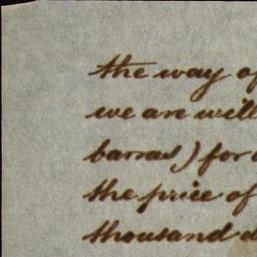 the way of
we are will
barras) for
the price of
thousand d